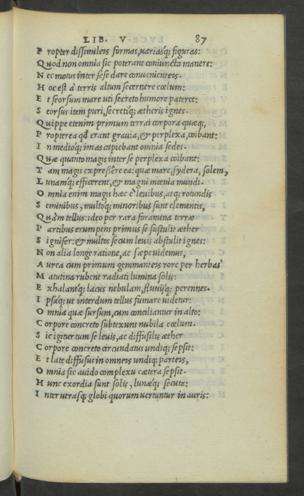 LIB. V 87
P ropter dissimileis formas, variasq; figuras:
Q uod non omnia sic poterant coniuncta manere:
N ec motus inter sese dare convenienteis.
H oc est à terris altum secernere cœlum:
E t seorsum mare uti secreto humore pateret:
S eorsus item puri, secretiq; ætheris ignes.
Q uippe etenim primum terrai corpora quæq,
P ropterea qd erant gravia, & perplexa, coibant:
I n medioq; imas capiebant omnia sedes.
Q uæ quanto magis inter se perplexa coibant:
T am magis expressere ea: quæ mare, sydera, solem,
L unamq; efficerent, & magni mœnia mundi.
O mnia enim magis hæc è levibus, atq; rotundis
S eminibus, multoq; minoribus sunt elementis,
Q uam tellus: ideo per rara foramina terræ
P artibus erumpens primus se sustulit æther
S ignifer: & multos secum levis abstulit ignes:
N on alia longe ratione, ac sæpe videmus,
A urea cum primum gemmanteis rore per herbas
M atutina rubent radiati lumina solis:
E xhalantq; lacus nebulam, fluviiq; perennes.
I psaq; ut interdum tellus fumare videtur:
O mnia quæ sursum, cum conciliantur in alto:
C orpore concreto subtexunt nubila cœlum.
S ic igitur tum se levis, ac diffusilis æther
C orpore concreto circundatus undiq; sepsit:
E t late diffusus in omneis undiq; parteis,
O mnia sic avido complexu cætera sepsit.
H unc exordia sunt solis, lunæq; secuta:
I nter utrasq; globi quorum vertuntur in auris: